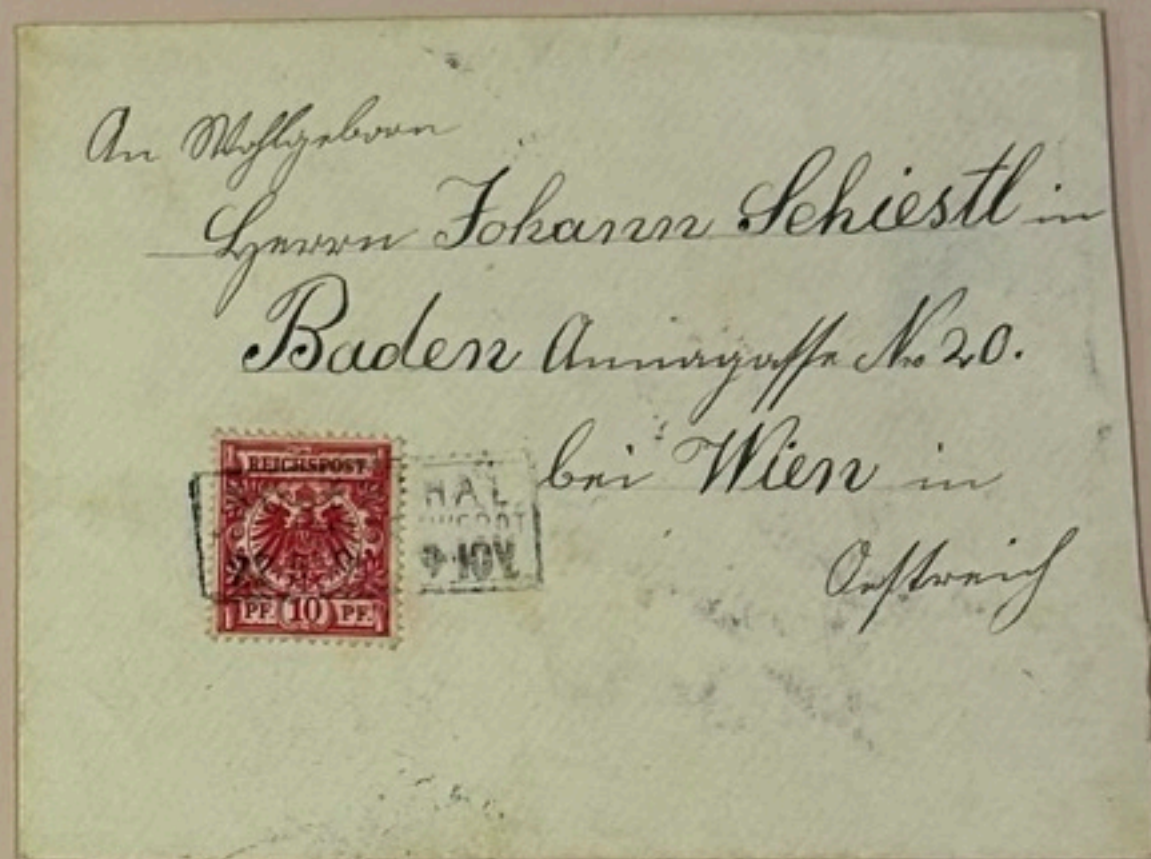 An Wohlgeborn
Herrn Johann Schiestl in
Baden Annagasse No 20.
bei Wien in
Oestreich
REICHSPOST
PF. 10 PF.
HAL.
10V.